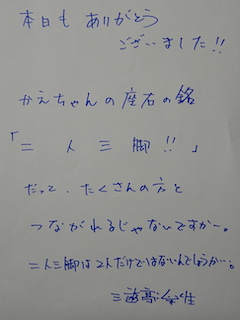 本日も ありがとう
ございました!!
かえちゃんの座右の銘
「二 人 三 脚 !! 」
だって、たくさんの方と
つながれるじゃないですかー。
二人三脚は2人だけではないんでしょうかー。